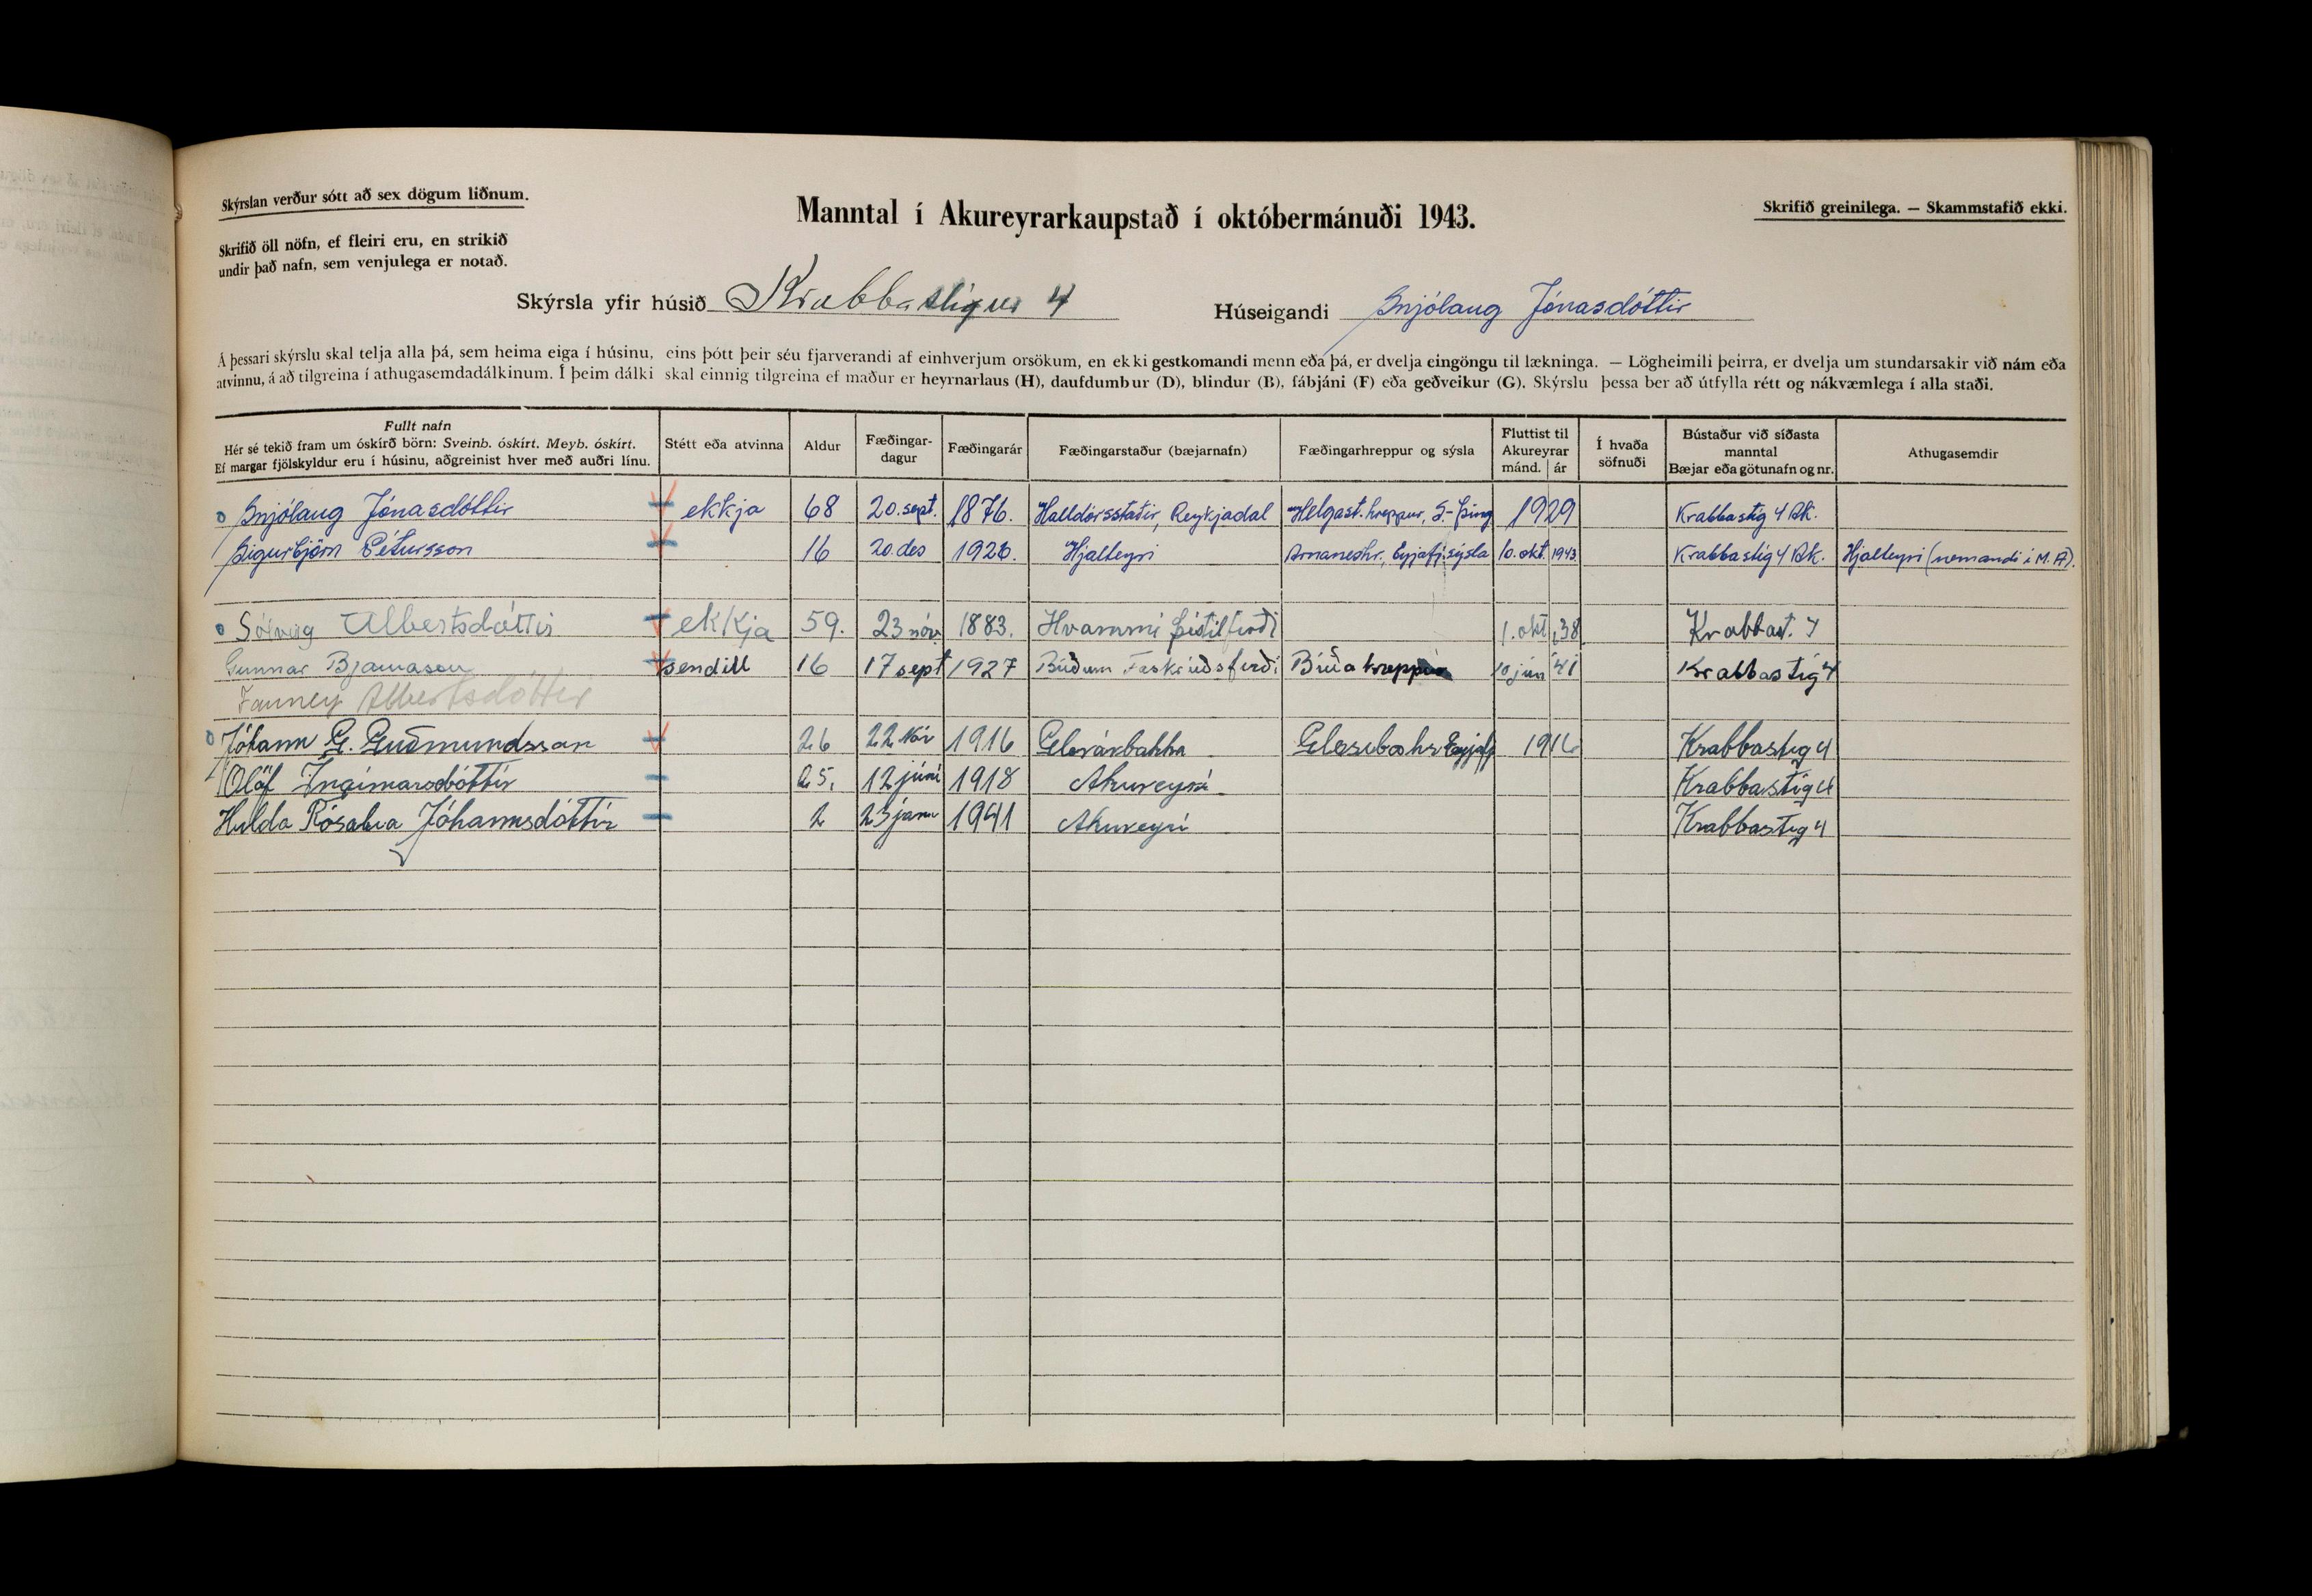 Skýrslan verður sótt að sex dögum liðnum.
Manntal í Akureyrarkaupstað í októbermánuði 1943.
Skrifið greinilega. — Skammstafið ekki.
Skrifið öll nöfn, ef fleiri eru, en strikið
undir það nafn, sem venjulega er notað.
Skýrsla yfir húsið Krabbastígur 4 Húseigandi Snjólaug Jónasdóttir
Á þessari skýrslu skal telja alla þá, sem heima eiga í húsinu, eins þótt þeir séu fjarverandi af einhverjum orsökum, en ekki gestkomandi menn eða þá, er dvelja eingöngu til lækninga. — Lögheimili þeirra, er dvelja um stundarsakir við nám eða
atvinnu, á að tilgreina í athugasemdadálkinum. Í þeim dálki skal einnig tilgreina ef maður er heyrnarlaus (H), daufdumbur (D), blindur (B), fábjáni (F) eða geðveikur (G). Skýrslu þessa ber að útfylla rétt og nákvæmlega í alla staði.
Fullt nafn
Hér sé tekið fram um óskírð börn: Sveinb. óskírt. Meyb. óskírt.
Ef margar fjölskyldur eru í húsinu, aðgreinist hver með auðri línu.
Stétt eða atvinna
Aldur
Fæðingar-
dagur
Fæðingarár
Fæðingarstaður (bæjarnafn)
Fæðingarhreppur og sýsla
Fluttist til
Akureyrar
mánd. ár
Í hvaða
söfnuði
Bústaður við síðasta
manntal
Bæjar eða götunafn og nr.
Athugasemdir
Snjólaug Jónasdóttir ekkja 68 20. sept. 1876. Halldórsstaðir, Reykjadal Helgast. hreppur, S-Þing 1929 Krabbastíg 4 Ak.
Sigurbjörn Pétursson 16 20. des 1926. Hjalteyri Arnaneshr., Eyjafj. sýsla 10. okt. 1943 Krabbastíg 4 Ak. Hjalteyri (nemandi í M. A).
Sólveig Albertsdóttir ekkja 59. 23 nóv 1883. Hvammi Þistilfirði 1. okt ,38 Krabbast. 4
Gunnar Bjarnason sendill 16 17 sept 1927 Búðum Fáskrúðsfirði Búðahreppur 10 jún 41 Krabbastíg 4
Fanney Albertsdóttir
Jóhann G. Guðmundsson 26 22 Nóv 1916 Glerárbakka Glæsibæhr Eyjafj 1916 Krabbastíg 4
Ólöf Ingimarsdóttir 25, 12 júní 1918 Akureyri Krabbastíg 4
Hulda Rósalía Jóhannsdóttir 2 23 janu 1941 Akureyri Krabbastíg 4